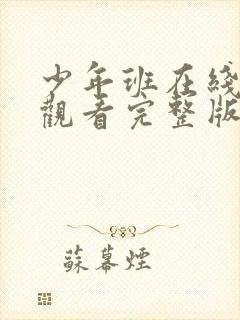 少年班在綫
觀看完整版
蘇幕煙